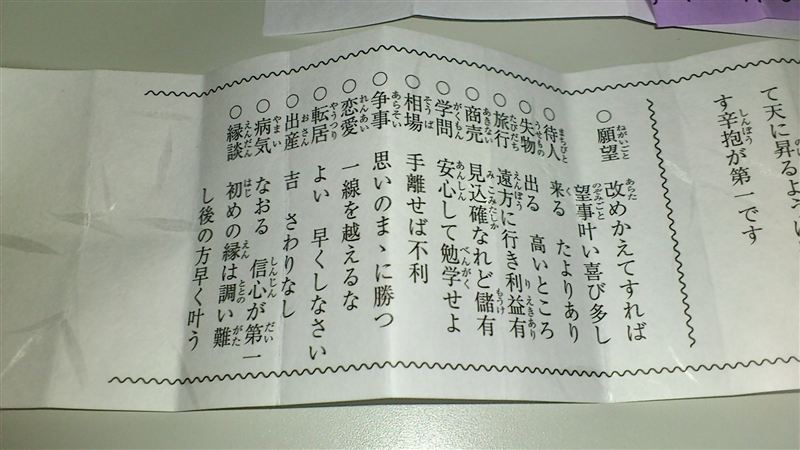 て天に昇るよう
す辛抱が第一です
○願望 改めかえてすれば
望事叶い喜び多し
○待人 来る たよりあり
○失物 出る 高いところ
○旅行 遠方に行き利益有
○商売 見込確なれど儲有
○学問 安心して勉学せよ
○相場 手離せば不利
○争事 思いのまゝに勝つ
○恋愛 一線を越えるな
○転居 よい 早くしなさい
○出産 吉 さわりなし
○病気 なおる 信心が第一
○縁談 初めの縁は調い難
し後の方早く叶う